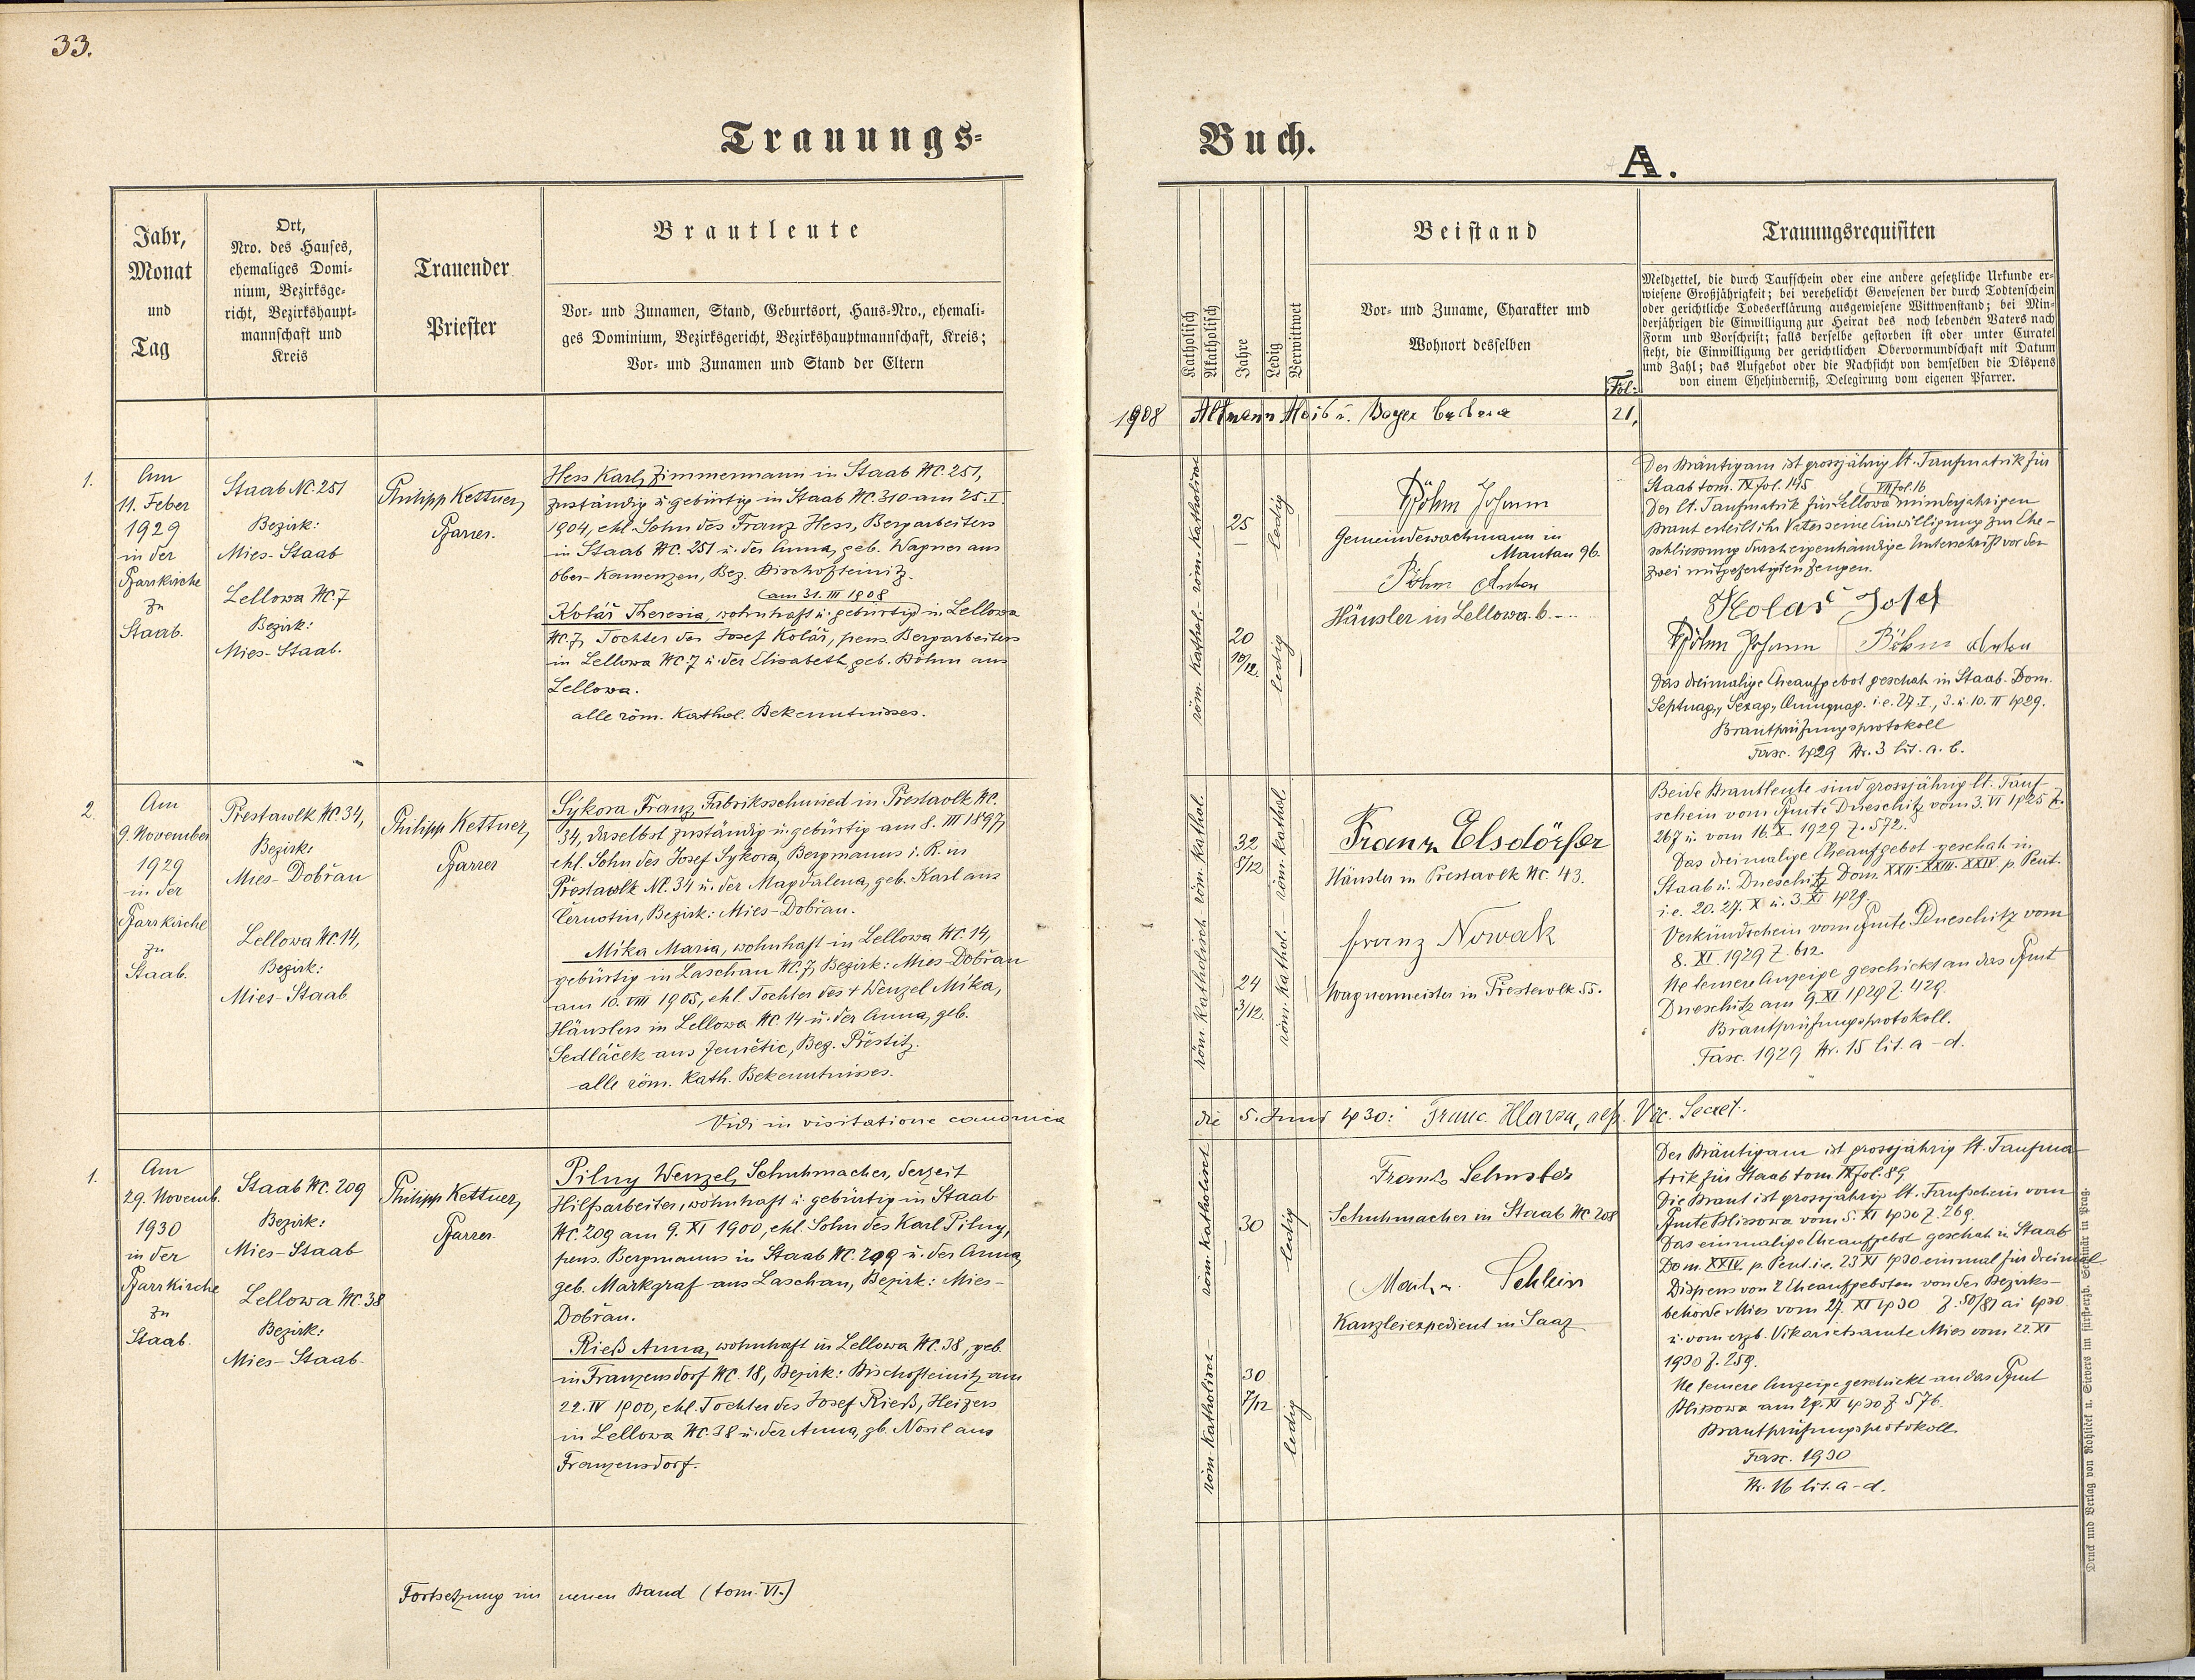 33.
Trauungs-
Buch.
A.
Jahr,
Monat
und
Tag
Ort,
Nro. des Hauses,
ehemaliges Domi-
nium, Bezirksge-
richt, Bezirkshaupt-
mannschaft und
Kreis
Trauender
Priester
Brautleute
Vor- und Zunamen, Stand, Geburtsort, Haus-Nro., ehemali-
ges Dominium, Bezirksgericht, Bezirkshauptmannschaft, Kreis;
Vor- und Zunamen und Stand der Eltern
Katholisch
Akatholisch
Jahre
Ledig
Verwittwet
Beistand
Vor- und Zuname, Charakter und
Wohnort desselben
Fol:
Trauungsrequisiten
Meldzettel, die durch Taufschein oder eine andere gesetzliche Urkunde er-
wiesene Großjährigkeit; bei verehelicht Gewesenen der durch Todtenschein
oder gerichtliche Todeserklärung ausgewiesene Wittwenstand; bei Min-
derjährigen die Einwilligung zur Heirat des noch lebenden Vaters nach
Form und Vorschrift; falls derselbe gestorben ist oder unter Curatel
steht, die Einwilligung der gerichtlichen Obervormundschaft mit Datum
und Zahl; das Aufgebot oder die Nachsicht von demselben die Dispens
von einem Ehehinderniß, Delegirung vom eigenen Pfarrer.
1908 Altmann Alois u. Bayer Barbara 21,
1.
Am
11. Feber
1929
in der
Pfarrkirche
zu
Staab.
Staab Nč. 251
Bezirk:
Mies-Staab
Lellowa Nč. 7
Bezirk:
Mies-Staab.
Philipp Kettner,
Pfarrer.
Hess Karl, Zimmermann in Staab Nč. 251,
zuständig u. gebürtig in Staab Nč. 310 am 25. I.
1904, ehl. Sohn des Franz Hess, Bergarbeiters
in Staab Nč. 251 u. der Anna, geb. Wagner aus
Ober-Kamenzen, Bez. Bischofteinitz.
am 31. III 1908
Kolář Theresia, wohnhaft u. gebürtig in Lellowa
Nč. 7, Tochter des Josef Kolář, pens. Bergarbeiters
in Lellowa Nč. 7 u. der Elisabeth, geb. Böhm aus
Lellowa.
alle röm. Kathol. Bekenntnisses.
röm. Katholisch
25
ledig
röm. Kathol.
20
10/12.
ledig
Böhm Johann
Gemeindewachmann in
Mantau 96.
Böhm Anton
Häusler in Lellowa 6.
Der Bräutigam ist grossjährig lt. Taufmatrik für
Staab tom. IX fol. 145
VIII fol. 16
Der lt. Taufmatrik für Lellowa minderjährigen
Braut erteilt ihr Vater seine Einwilligung zur Ehe-
schliessung durch eigenhändige Unterschrift vor den
zwei mitgefertigten Zeugen.
Kolář Josef
Böhm Johann Böhm Anton
Das dreimalige Eheaufgebot geschah in Staab Dom.
Septuag., Sexag., Quinquag. i.e. 27. I., 3. u. 10. II 1929.
Brautprüfungsprotokoll
Fasc. 1929 Nr. 3 lit. a. b.
2.
Am
9. November
1929
in der
Pfarrkirche
zu
Staab.
Prestawlk Nč. 34,
Bezirk:
Mies-Dobřan
Lellowa Nč. 14,
Bezirk:
Mies-Staab
Philipp Kettner,
Pfarrer
Sýkora Franz, Fabriksschmied in Prestavlk Nč.
34, daselbst zuständig u. gebürtig am 8. III 1897,
ehl. Sohn des Josef Sýkora, Bergmanns i. R. in
Přestawlk Nč. 34 u. der Magdalena, geb. Karl aus
Černotin, Bezirk: Mies-Dobřan.
Mika Maria, wohnhaft in Lellowa Nč. 14,
gebürtig in Laschan Nč. 7, Bezirk: Mies-Dobřan
am 10. VIII 1905, ehl. Tochter des + Wenzel Mika,
Häuslers in Lellowa Nč. 14 u. der Anna, geb.
Sedláček aus Zemětic, Bez. Přestitz.
alle röm. Kath. Bekenntnisses.
röm. Kathol.
32
8/12
röm. Kathol.
röm. Katholisch
24
3/12.
röm. Kathol.
Franz Elsdörfer
Häusler in Prestavlk Nč. 43.
Franz Nowak
Wagnermeister in Prestavlk 55.
Beide Brautleute sind grossjährig lt. Tauf-
schein vom Pfamte Dneschitz vom 3. VI 1925 Z.
267 u. vom 16. X. 1929 Z. 572.
Das dreimalige Eheaufgebot geschah in
Staab u. Dneschitz Dom. XXII. XXIII. XXIV. p. Pent.
i.e. 20. 27. X u. 3. XI 1929.
Verkündschein vom Pfamte Dneschitz vom
8. XI. 1929 Z. 612.
Ne temere Anzeige geschickt an das Pfamt
Dneschitz am 9. XI 1929 Z. 429.
Brautprüfungsprotokoll.
Fasc. 1929 Nr. 15 lit. a-d.
Vidi in visitatione canonica die 5. Juni 1930: Franc. Vic. Secret.
1.
Am
29. Novemb.
1930
in der
Pfarrkirche
zu
Staab.
Staab Nč. 209
Bezirk:
Mies-Staab
Lellowa Nč. 38
Bezirk:
Mies-Staab.
Philipp Kettner,
Pfarrer
Pilny Wenzel, Schuhmacher, derzeit
Hilfsarbeiter, wohnhaft u. gebürtig in Staab
Nč. 209 am 9. XI 1900, ehl. Sohn des Karl Pilny,
pens. Bergmanns in Staab Nč. 209 u. der Anna,
geb. Markgraf aus Laschan, Bezirk: Mies-
Dobřan.
Rieß Anna, wohnhaft in Lellowa Nč. 38, geb.
in Franzensdorf Nč. 18, Bezirk: Bischofteinitz am
22. IV 1900, ehl. Tochter des Josef Rieß, Heizers
in Lellowa Nč. 38 u. der Anna, gb. Nosil aus
Franzensdorf.
röm. Katholisch
30
ledig
röm. Katholisch
30
7/12
ledig
Franz Schuster
Schuhmacher in Staab Nč. 208
Schlein
Kanzleiexpedient in Saaz
Der Bräutigam ist grossjährig lt. Taufma-
trik für Staab tom. IX fol. 89
Die Braut ist grossjährig lt. Taufschein vom
Pfamte Blisowa vom 5. XI 1930 Z. 269.
Das einmalige Eheaufgebot geschah in Staab
Dom. XXIV. p. Pent. i.e. 23 XI 1930 einmal für dreimal
Dispens von 2 Eheaufgeboten von der Bezirks-
behörde Mies vom 27. XI 1930 Z. 50/81 ai 1930
u. vom erzb. Vikariatsamte Mies vom 22. XI
1930 Z. 259.
Ne temere Anzeige geschickt an das Pfamt
Blisowa am 29. XI 1930 Z 576.
Brautprüfungsprotokoll
Fasc. 1930
Nr. 16 lit. a-d.
Fortsetzung im neuen Band (tom. VI.)
Druck und Verlag von Rohliček u. Sievers im fürsterzb. Seminär in Prag.